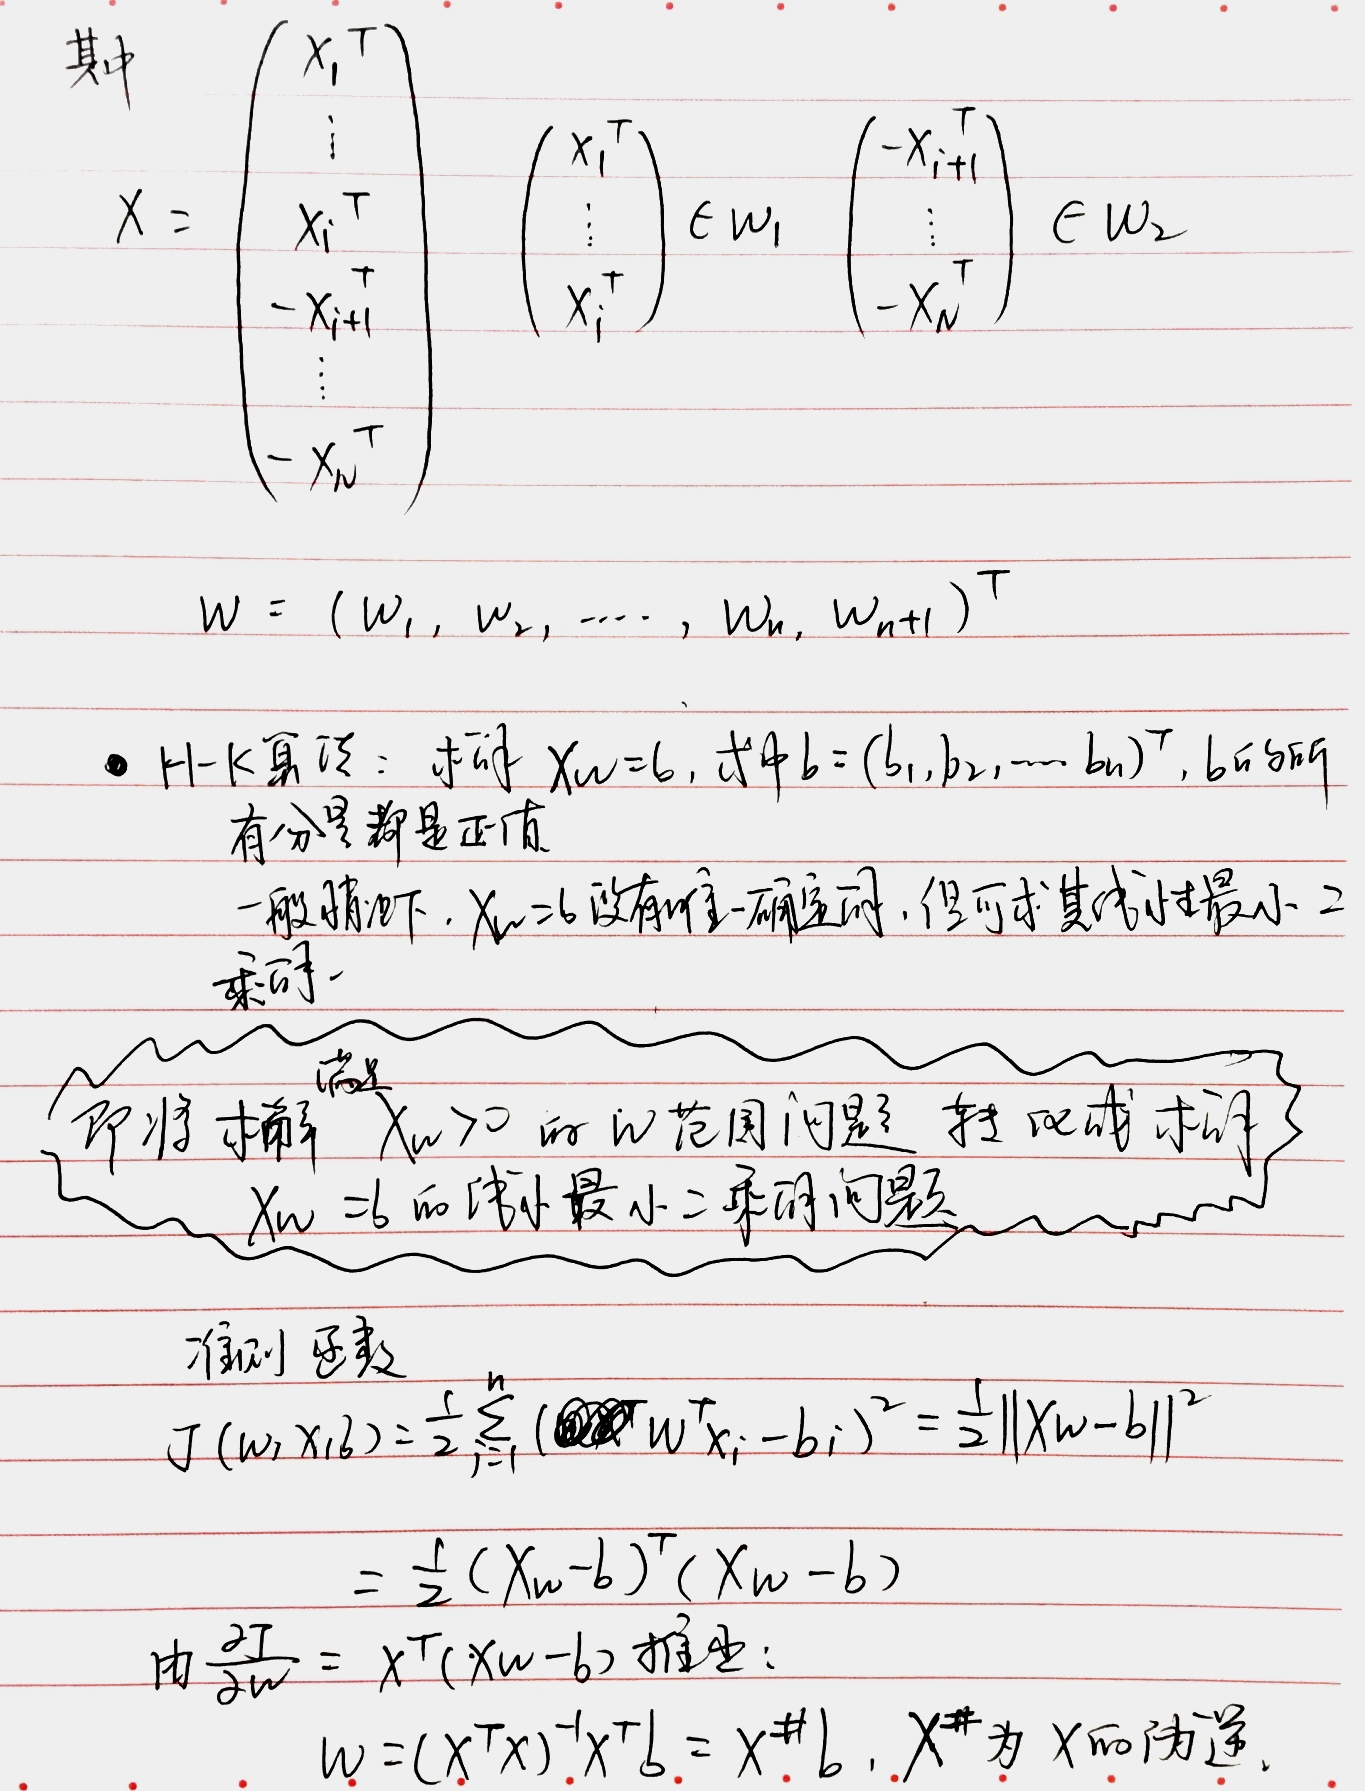 其中
X = (x₁ᵀ ⋮ xᵢᵀ -xᵢ₊₁ᵀ ⋮ -x_Nᵀ) (x₁ᵀ ⋮ xᵢᵀ) ∈ w₁ (-xᵢ₊₁ᵀ ⋮ -x_Nᵀ) ∈ w₂
W = (w₁, w₂, ····, wₙ, wₙ₊₁)ᵀ
• H-K算法: 求解 Xw=b, 式中b=(b₁,b₂,···· bₙ)ᵀ, b的所
有分量都是正值
一般情况下, Xw=b没有唯一确定解, 但可求其线性最小二
乘解.
即将求解满足Xw>0的w范围问题 转化成求解
Xw=b的线性最小二乘解问题
准则函数
J(w,x,b) = 1/2 ∑ᵢ₌₁ⁿ (wᵀxᵢ-bᵢ)² = 1/2||Xw-b||²
= 1/2 (Xw-b)ᵀ(Xw-b)
由 ∂J/∂w = Xᵀ(Xw-b) 推出:
w=(XᵀX)⁻¹Xᵀb = X^#b, X^#为X的伪逆.